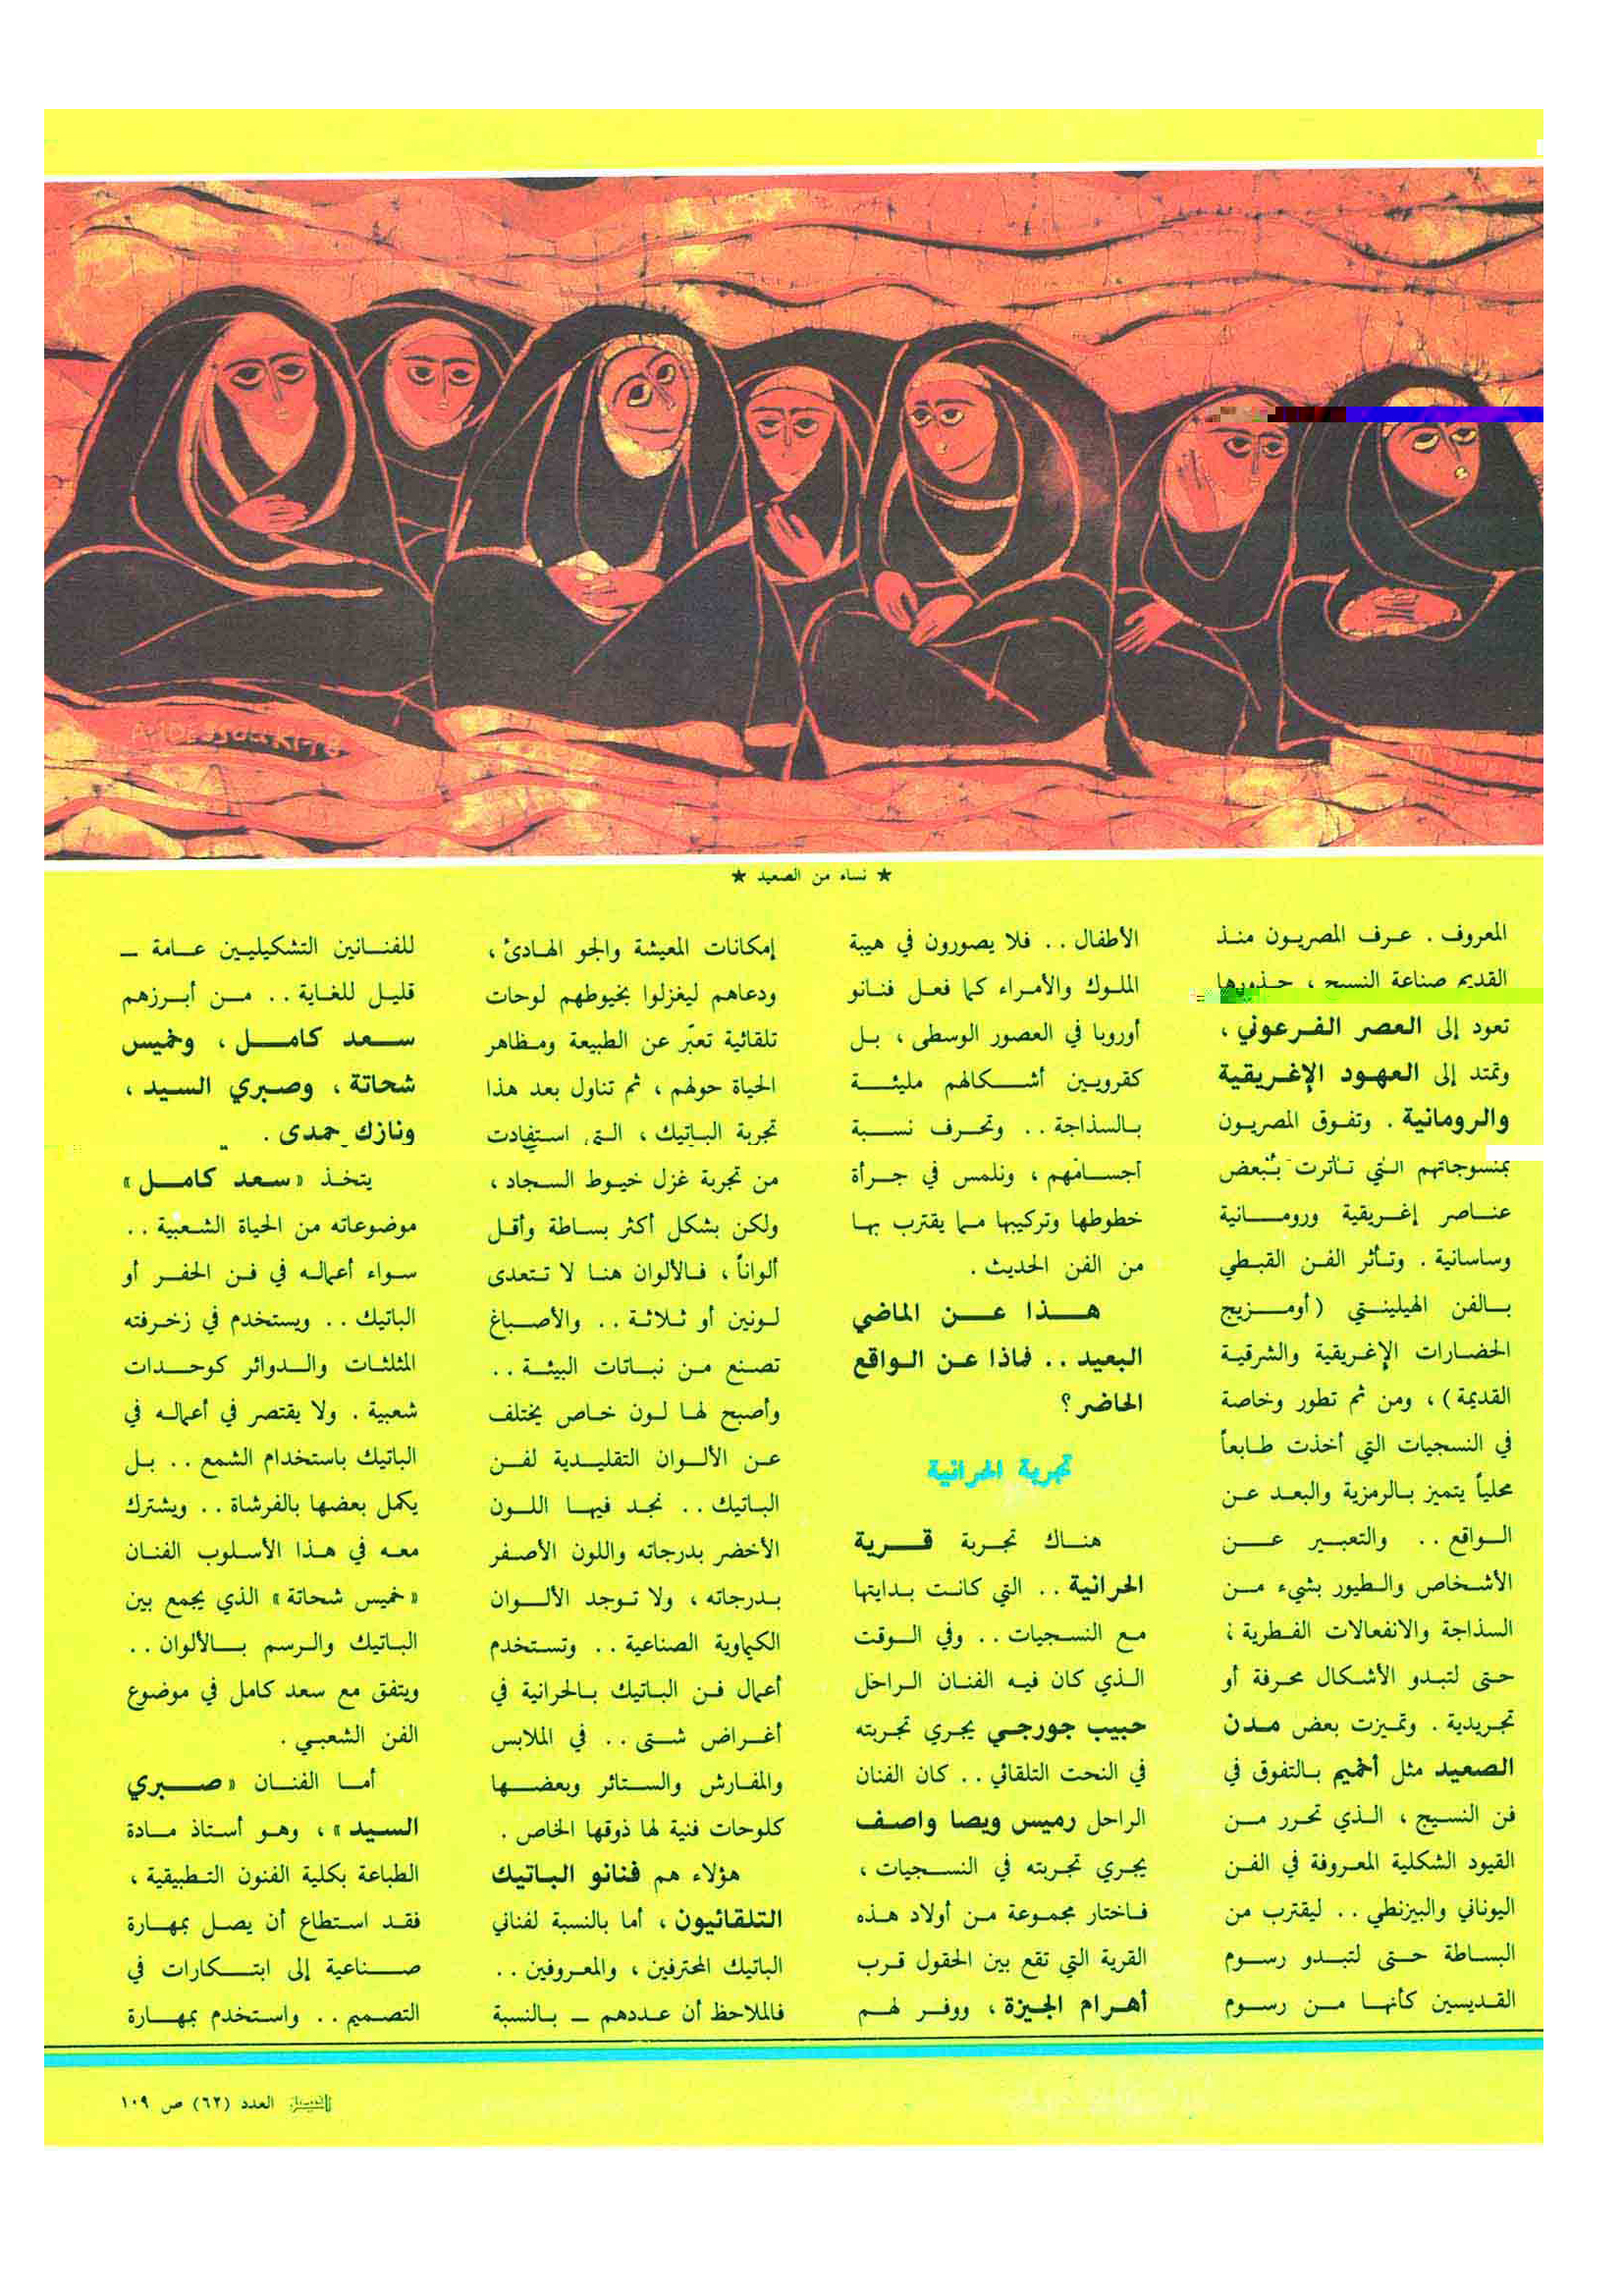 ★ نساء من الصعيد ★
المعروف . عرف المصريون منذ
القديم صناعة النسيج ، جذورها
تعود إلى العصر الفرعوني ،
وتمتد إلى العهود الإغريقية
والرومانية . وتفوق المصريون
بمنسوجاتهم التي تأثرت ببعض
عناصر إغريقية ورومانية
وساسانية . وتأثر الفن القبطي
بالفن الهيلينستي (أومزيج
الحضارات الإغريقية والشرقية
القديمة) ، ومن ثم تطور وخاصة
في النسجيات التي أخذت طابعاً
محلياً يتميز بالرمزية والبعد عن
الواقع . . والتعبير عن
الأشخاص والطيور بشيء من
السذاجة والانفعالات الفطرية ؛
حتى لتبدو الأشكال محرفة أو
تجريدية . وتميزت بعض مدن
الصعيد مثل أخميم بالتفوق في
فن النسيج ، الذي تحرر من
القيود الشكلية المعروفة في الفن
اليوناني والبيزنطي . . ليقترب من
البساطة حتى لتبدو رسوم
القديسين كأنها من رسوم
الأطفال . . فلا يصورون في هيبة
الملوك والأمراء كما فعل فنانو
أوروبا في العصور الوسطى ، بل
كقرويين أشكالهم مليئة
بالسذاجة . . وتحرف نسبة
أجسامهم ، ونلمس في جرأة
خطوطها وتركيبها مما يقترب بها
من الفن الحديث .
هذا عن الماضي
البعيد . . فماذا عن الواقع
الحاضر ؟
تجربة الحرانية
هناك تجربة قرية
الحرانية . . التي كانت بدايتها
مع النسجيات . . وفي الوقت
الذي كان فيه الفنان الراحل
حبيب جورجي يجري تجربته
في النحت التلقائي . . كان الفنان
الراحل رميس ويصا واصف
يجري تجربته في النسجيات ،
فاختار مجموعة من أولاد هذه
القرية التي تقع بين الحقول قرب
أهرام الجيزة ، ووفر لهم
إمكانات المعيشة والجو الهادئ ،
ودعاهم ليغزلوا بخيوطهم لوحات
تلقائية تعبّر عن الطبيعة ومظاهر
الحياة حولهم ، ثم تناول بعد هذا
تجربة الباتيك ، التي استفادت
من تجربة غزل خيوط السجاد ،
ولكن بشكل أكثر بساطة وأقل
ألواناً ، فالألوان هنا لا تتعدى
لونين أو ثلاثة . . والأصباغ
تصنع من نباتات البيئة . .
وأصبح لها لون خاص يختلف
عن الألوان التقليدية لفن
الباتيك . . نجد فيها اللون
الأخضر بدرجاته واللون الأصفر
بدرجاته ، ولا توجد الألوان
الكيماوية الصناعية . . وتستخدم
أعمال فن الباتيك بالحرانية في
أغراض شتى . . في الملابس
والمفارش والستائر وبعضها
كلوحات فنية لها ذوقها الخاص .
هؤلاء هم فنانو الباتيك
التلقائيون ، أما بالنسبة لفناني
الباتيك المحترفين ، والمعروفين . .
فالملاحظ أن عددهم – بالنسبة
للفنانين التشكيليين عامة –
قليل للغاية . . من أبرزهم
سعد كامل ، وخميس
شحاتة ، وصبري السيد ،
ونازك حمدى .
يتخذ «سعد كامل»
موضوعاته من الحياة الشعبية . .
سواء أعماله في فن الحفر أو
الباتيك . . ويستخدم في زخرفته
المثلثات والدوائر كوحدات
شعبية . ولا يقتصر في أعماله في
الباتيك باستخدام الشمع . . بل
يكمل بعضها بالفرشاة . . ويشترك
معه في هذا الأسلوب الفنان
«خميس شحاتة» الذي يجمع بين
الباتيك والرسم بالألوان . .
ويتفق مع سعد كامل في موضوع
الفن الشعبي .
أما الفنان «صبري
السيد» ، وهو أستاذ مادة
الطباعة بكلية الفنون التطبيقية ،
فقد استطاع أن يصل بمهارة
صناعية إلى ابتكارات في
التصميم . . واستخدم بمهارة
الفيصل العدد (٦٢) ص ١٠٩